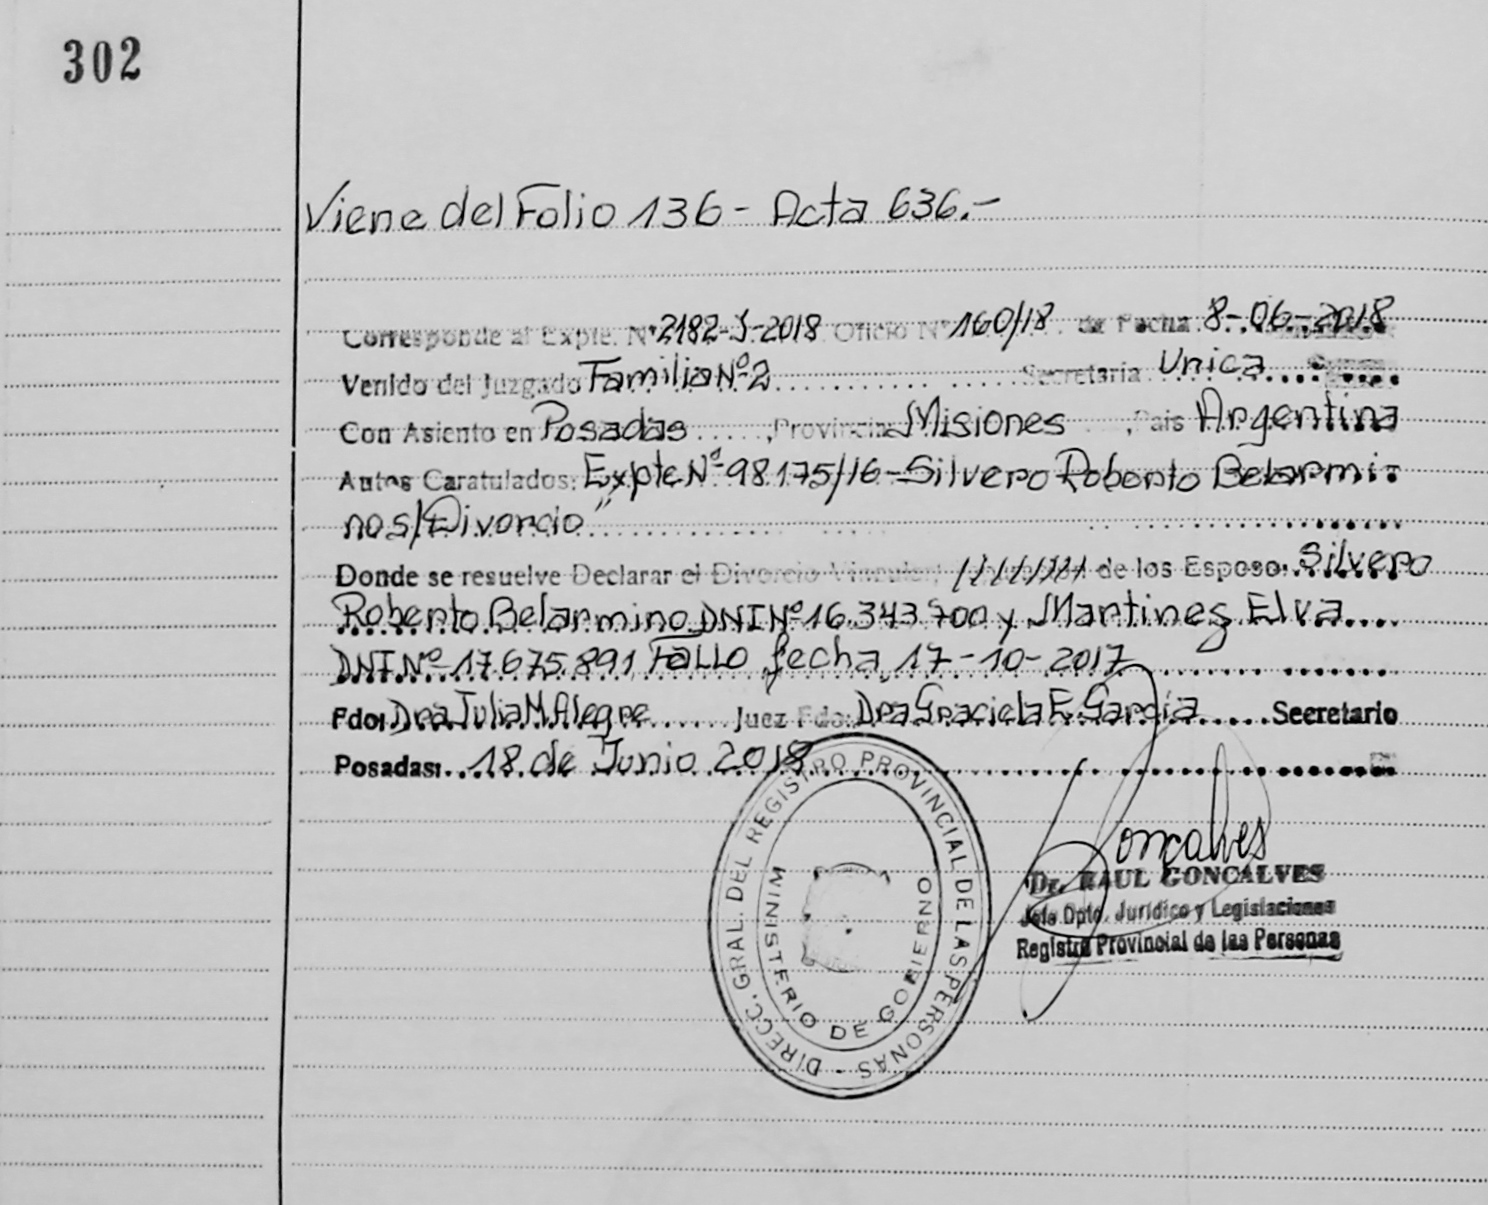 302
Viene del Folio 136 - Acta 636.-
Corresponde al Expte. Nº 2182-S-2018 Oficio Nº 160/18 de Fecha 8-06-2018
Venido del Juzgado Familia Nº 2 Secretaria Unica
Con Asiento en Posadas, Provincia Misiones, Pais Argentina
Autos Caratulados: Expte Nº 98175/16 - Silvero Roberto Belarmi-
no s/Divorcio"
Donde se resuelve Declarar el Divorcio Vincular /////// de los Esposos: Silvero
Roberto Belarmino DNI Nº 16.343.700 y Martinez Elva
DNI Nº 17.675.891 FALLO fecha 17-10-2017
Fdo: Dra Julia M Alegre Juez Fdo: Dra Graciela E. Garcia Secretario
Posadas: 18 de Junio 2018
DIRECC. GRAL. DEL REGISTRO PROVINCIAL DE LAS PERSONAS -
MINISTERIO DE GOBIERNO
Goncalves
Dr. RAUL GONCALVES
Jefe Dpto. Jurídico y Legislaciones
Registro Provincial de las Personas